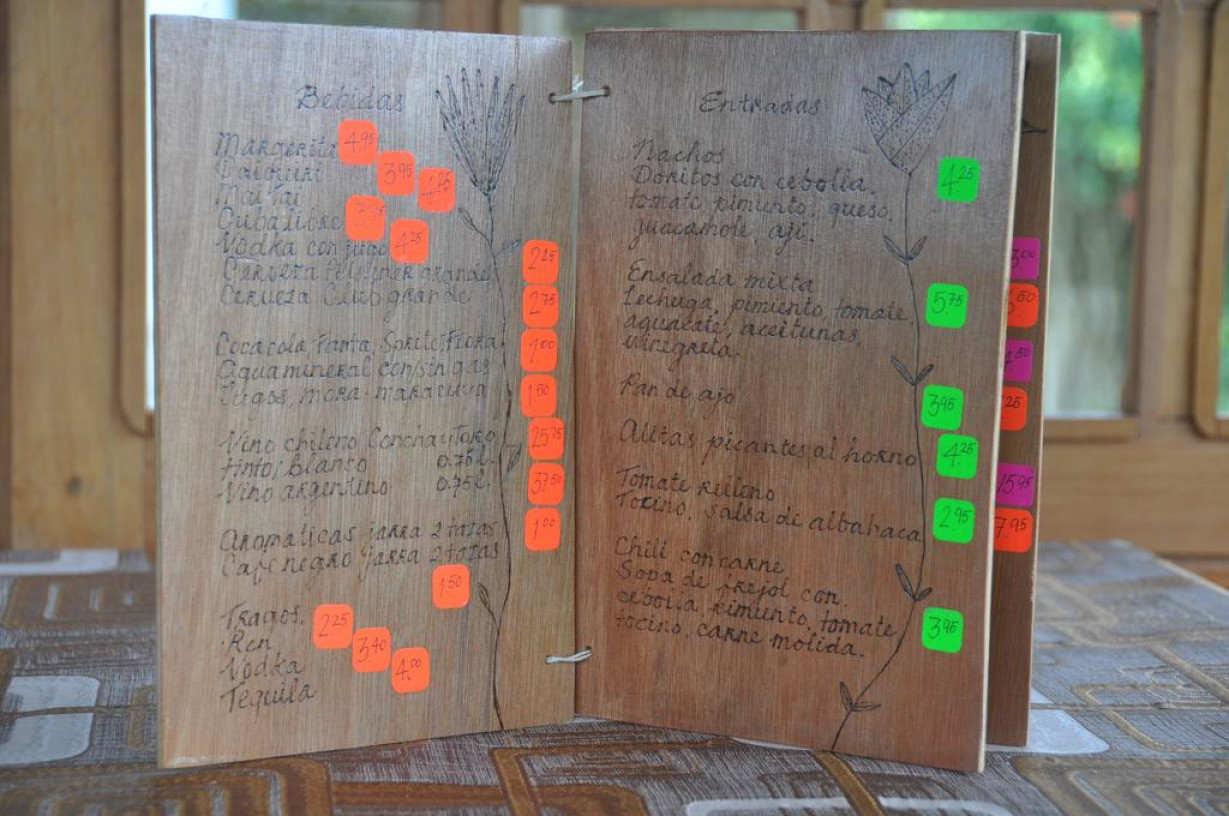 Bebidas
Margerita 4.95
Daiquiri 3.95
Mai Tai 4.25
Cubalibre
Vodka con jugo 4.25
Cerveza Pilsener grande 2.25
Cerveza Club grande 2.75
Cocacola, Fanta, Sprite, Fiora 1.00
Agua mineral con/sin gas
Jugos, mora-maracuya 1.50
Vino chileno Concha y Toro 25.75
tinto/blanco 0.75 l.
Vino argentino 0.75 l. 37.50
Aromaticas jarra 2 tazas 1.00
Cafe negro jarra 2 tazas
1.50
Tragos.
Ron 2.25
Vodka 3.40
Tequila 4.00
Entradas
Nachos
Doritos con cebolla, 4.25
tomate pimiento, queso,
guacamole, ají.
Ensalada mixta
Lechuga, pimiento, tomate, 5.75
aguacate, aceitunas,
vinegreta.
Pan de ajo 3.95
Alitas picantes al horno 4.25
Tomate relleno
Tocino, salsa de albahaca 2.95
Chili con carne
Sopa de frejol con
cebolla, pimiento, tomate, 3.95
tocino, carne molida.
15.95
7.95